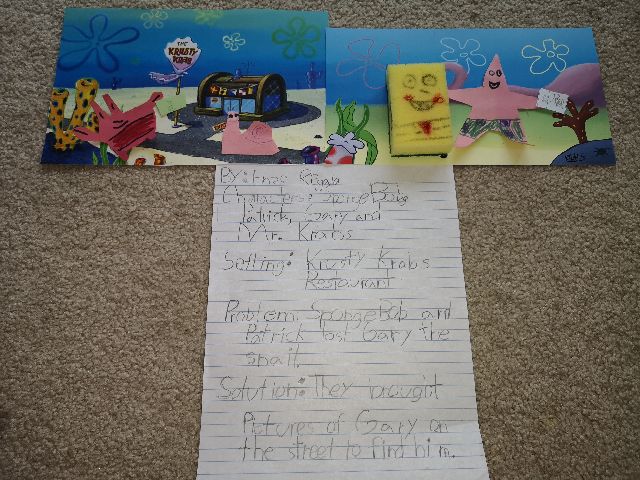 THE
KRUSTY
KRAB
By:
Characters: Sponge Bob
Patrick, Gary and
Mr. Krabs
Setting: Krusty Krabs
Restaurant
Problem: SpongeBob and
Patrick lost Gary the
snail.
Solution: They brought
Pictures of Gary on
the street to find him.